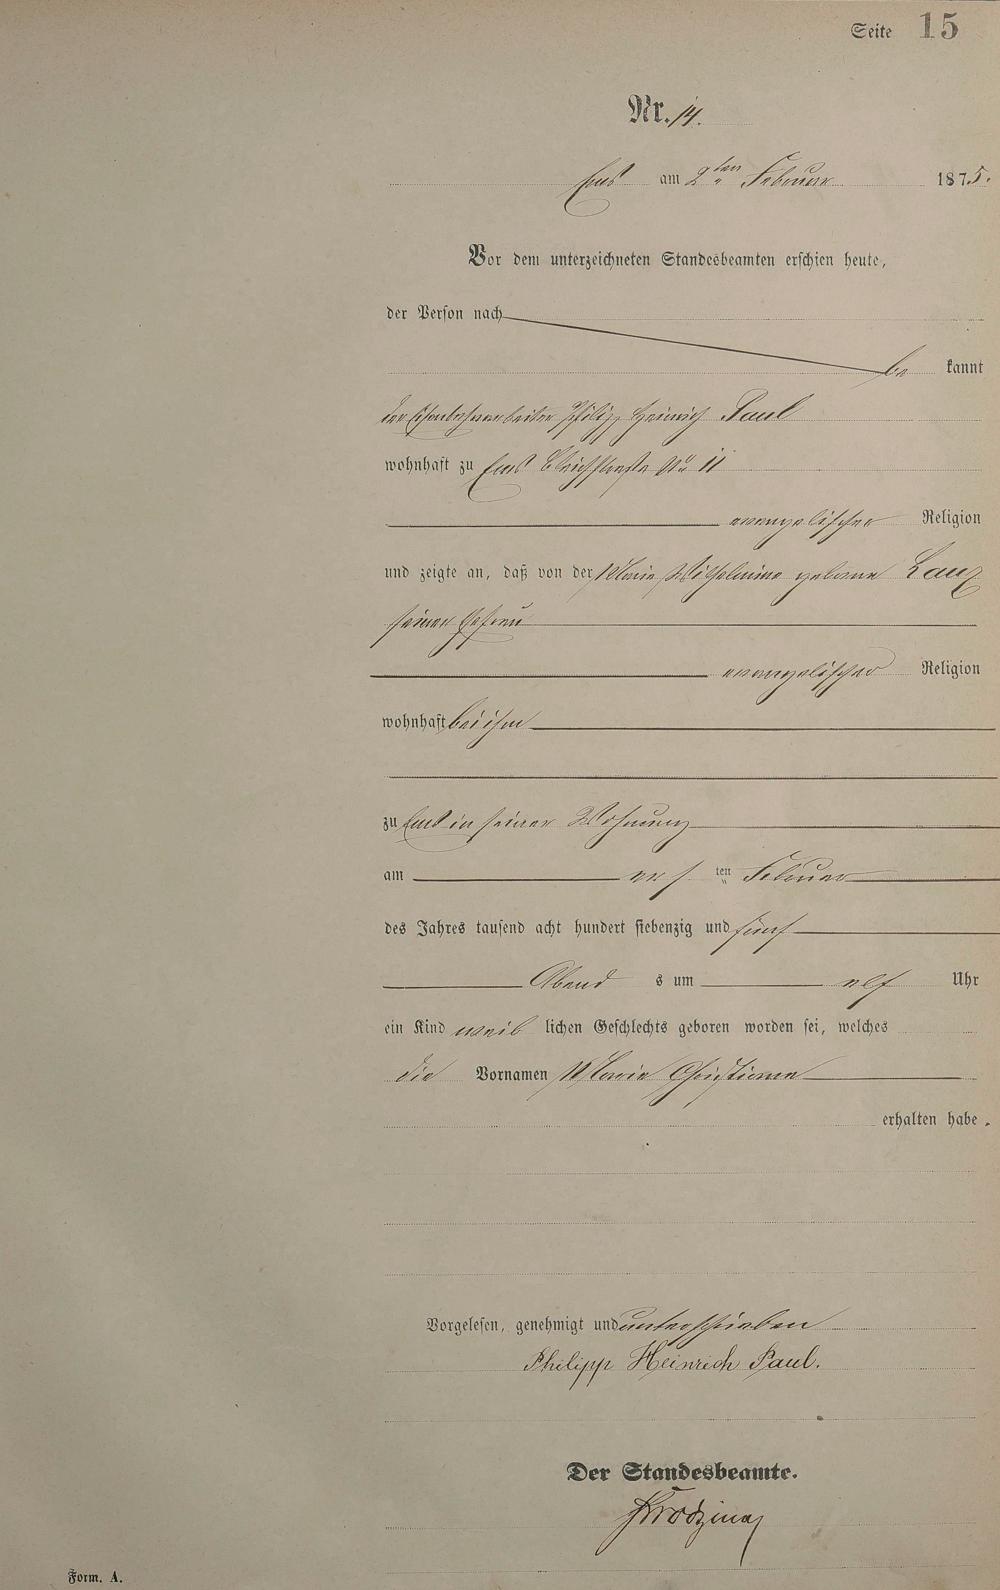 Seite 15
Nr. 14.
Ems am 2ten Februar 1875.
Vor dem unterzeichneten Standesbeamten erschien heute,
der Person nach
be kannt
der Eisenbahnarbeiter Philipp Heinrich Paul
wohnhaft zu Ems Bleichstraße No 11
evangelischer Religion
und zeigte an, daß von der Marie Wilhelmine geborne Lanz
seiner Ehefrau
evangelischer Religion
wohnhaft bei ihm
zu Ems in seiner Wohnung
am ers ten Februar
des Jahres tausend acht hundert siebenzig und fünf
Abend s um elf Uhr
ein Kind weib lichen Geschlechts geboren worden sei, welches
die Vornamen Marie Christiane
erhalten habe.
Vorgelesen, genehmigt und unterschrieben
Philipp Heinrich Paul.
Der Standesbeamte.
Form. A.